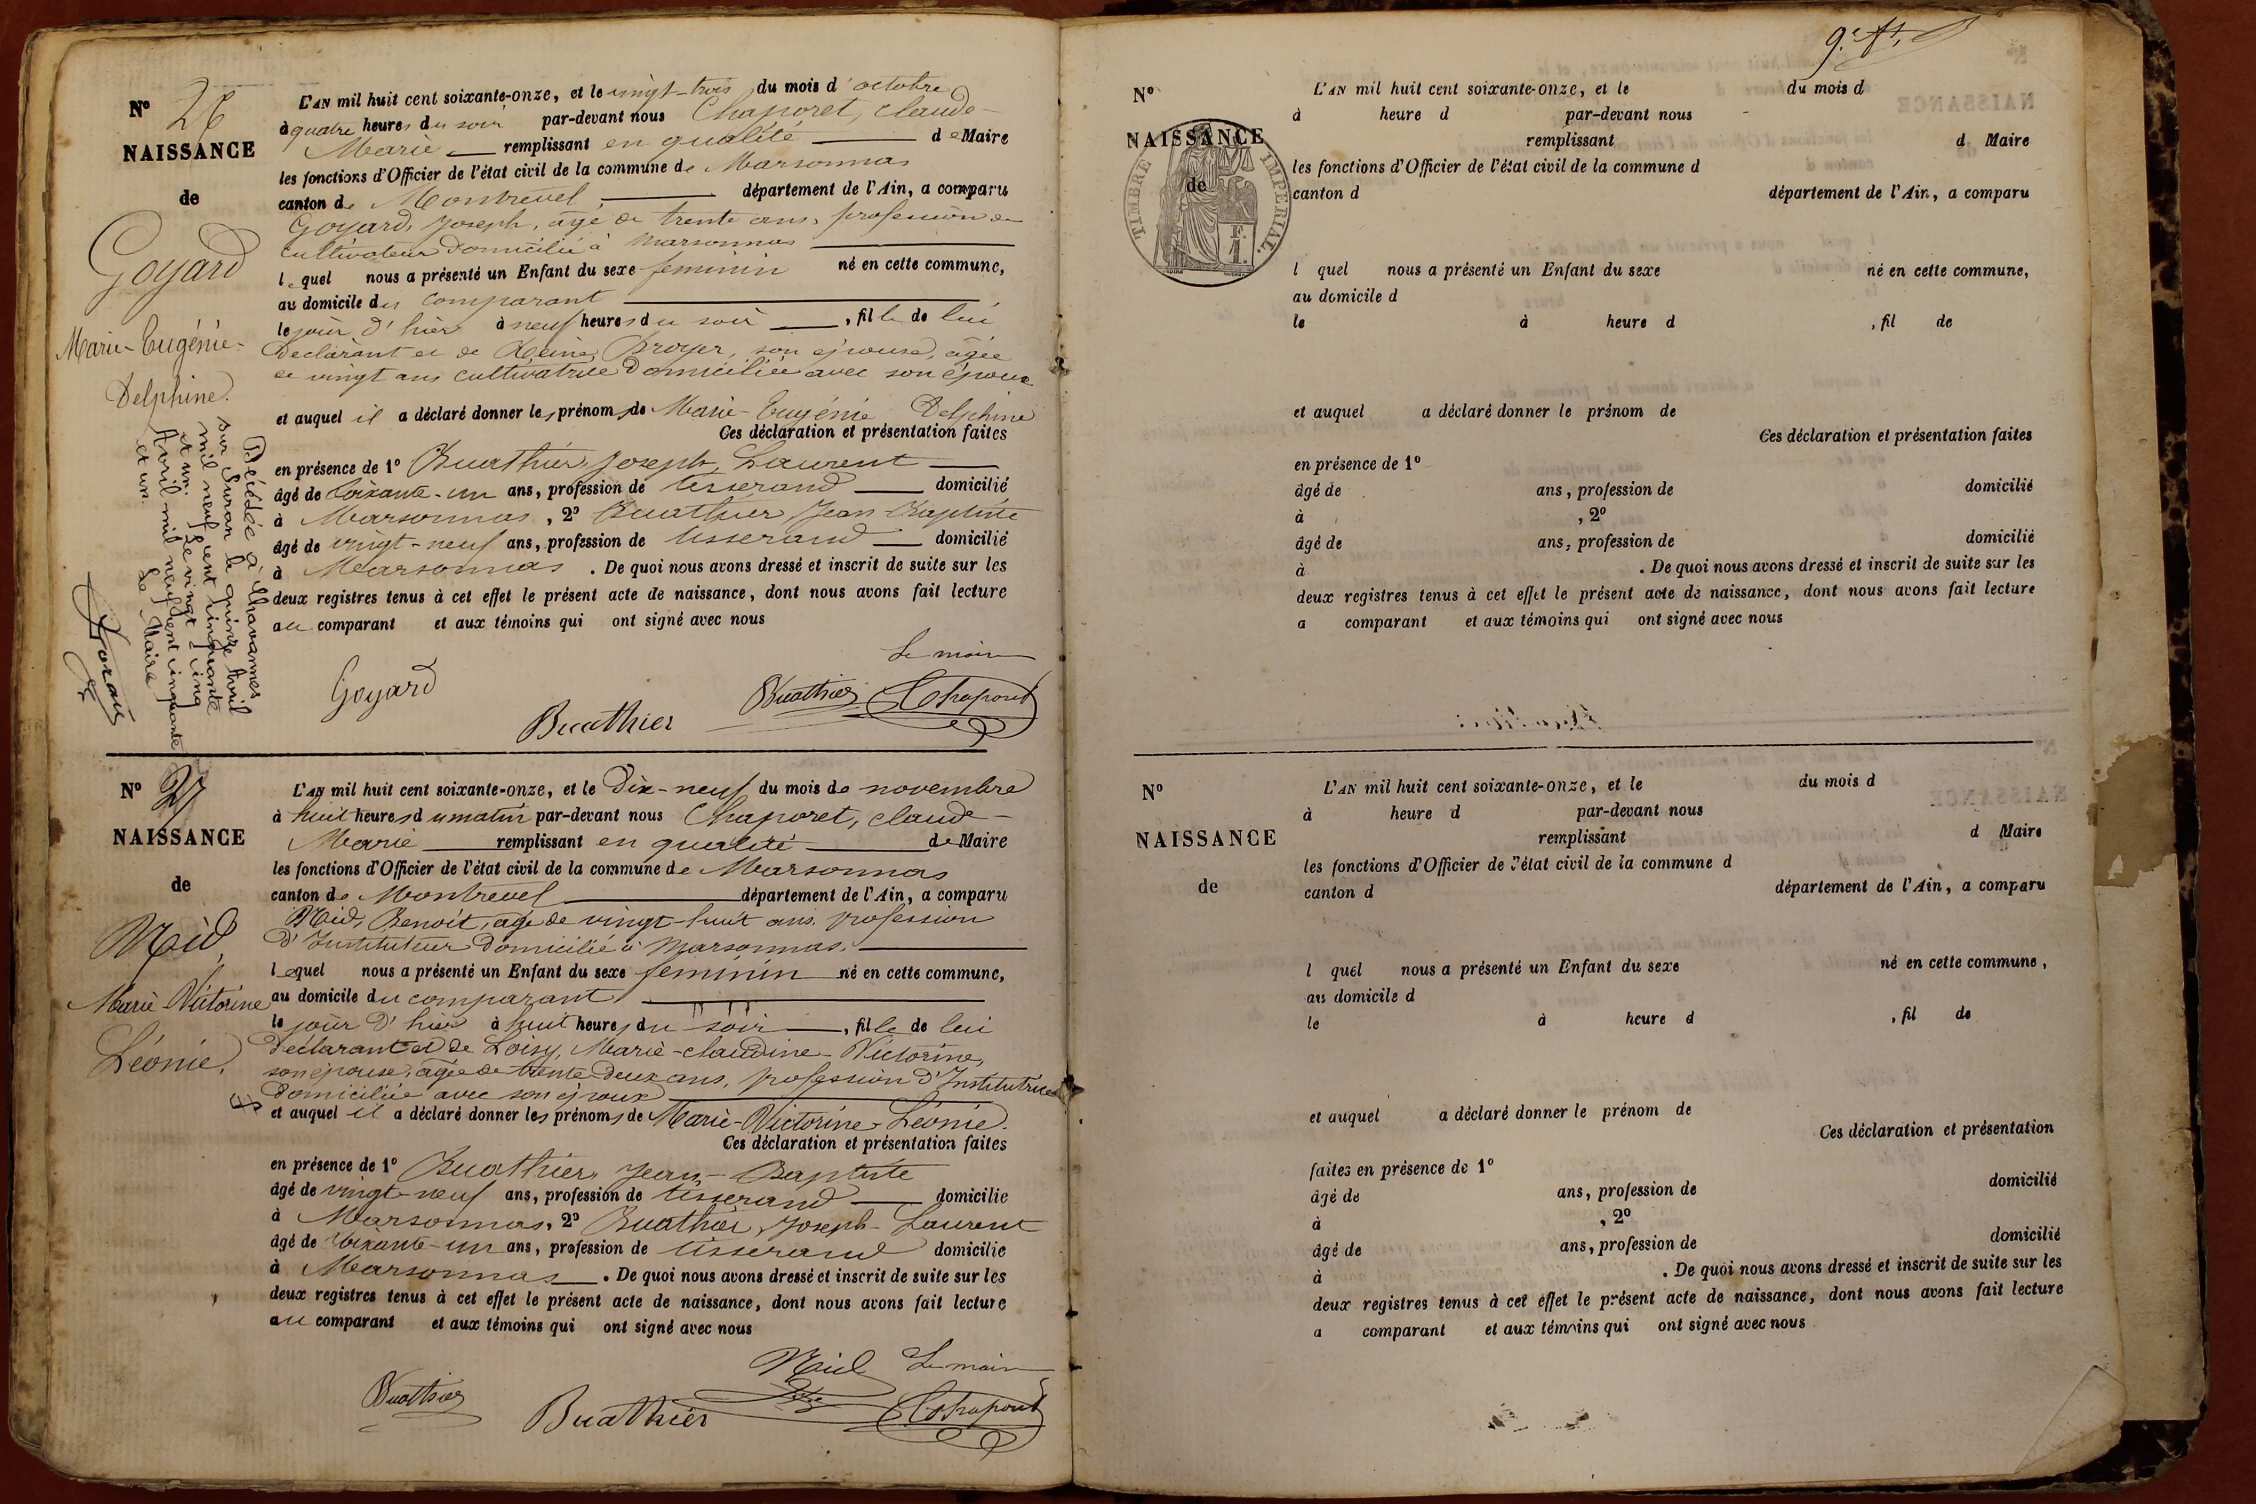 N° 26
NAISSANCE
de
Goyard
Marie-Eugénie-
Delphine.
Décédée à Chavannes
sur Suran le quinze Avril
mil neuf cent cinquante
et un. Le vingt cinq
Avril mil neuf cent cinquante
et un. Le Maire
L'AN mil huit cent soixante-onze, et le vingt-trois du mois d'octobre
à quatre heures du soir par-devant nous Chaporet, Claude-
Marie remplissant en qualité de Maire
les fonctions d'Officier de l'état civil de la commune de Marsonnas
canton de Montrevel département de l'Ain, a comparu
Goyard, Joseph, âgé de trente ans, profession de
cultivateur domicilié à Marsonnas
lequel nous a présenté un Enfant du sexe féminin né en cette commune,
au domicile du comparant
le jour d'hier à neuf heures du soir, fille de lui
déclarant et de Reine Broyer, son épouse, âgée
de vingt ans cultivatrice domiciliée avec son époux
et auquel il a déclaré donner les prénoms de Marie-Eugénie Delphine
Ces déclaration et présentation faites
en présence de 1° Buathier, Joseph, Laurent
âgé de soixante-un ans, profession de tisserand domicilié
à Marsonnas, 2° Buathier Jean Baptiste
âgé de vingt-neuf ans, profession de tisserand domicilié
à Marsonnas. De quoi nous avons dressé et inscrit de suite sur les
deux registres tenus à cet effet le présent acte de naissance, dont nous avons fait lecture
au comparant et aux témoins qui ont signé avec nous
Le maire
Goyard
Buathier
Buathier Chaporet
N° 27
NAISSANCE
de
Mid,
Marie-Victorine
Léonie.
L'AN mil huit cent soixante-onze, et le Dix-neuf du mois de novembre
à huit heures du matin par-devant nous Chaporet, Claude-
Marie remplissant en qualité de Maire
les fonctions d'Officier de l'état civil de la commune de Marsonnas
canton de Montrevel département de l'Ain, a comparu
Mid, Benoit, âgé de vingt-huit ans, profession
d'Instituteur domicilié à Marsonnas.
lequel nous a présenté un Enfant du sexe féminin né en cette commune,
au domicile du comparant
le jour d'hier à huit heures du soir, fille de lui
déclarant et de Loisy, Marie-Claudine-Victorine,
son épouse, âgée de trente deux ans, profession d'Institutrice
domiciliée avec son époux
et auquel il a déclaré donner les prénoms de Marie-Victorine-Léonie.
Ces déclaration et présentation faites
en présence de 1° Buathier, Jean-Baptiste
âgé de vingt-neuf ans, profession de tisserand domicilié
à Marsonnas, 2° Buathier, Joseph-Laurent
âgé de soixante-un ans, profession de tisserand domicilié
à Marsonnas. De quoi nous avons dressé et inscrit de suite sur les
deux registres tenus à cet effet le présent acte de naissance, dont nous avons fait lecture
au comparant et aux témoins qui ont signé avec nous
Mid Le maire
Buathier
Buathier Chaporet
N°
NAISSANCE
de
TIMBRE IMPERIAL.
L'AN mil huit cent soixante-onze, et le du mois d
à heure d par-devant nous
remplissant d Maire
les fonctions d'Officier de l'état civil de la commune d
canton d département de l'Ain, a comparu
l quel nous a présenté un Enfant du sexe né en cette commune,
au domicile d
le à heure d , fil de
et auquel a déclaré donner le prénom de
Ces déclaration et présentation faites
en présence de 1°
âgé de ans, profession de domicilié
à , 2°
âgé de ans, profession de domicilié
à . De quoi nous avons dressé et inscrit de suite sur les
deux registres tenus à cet effet le présent acte de naissance, dont nous avons fait lecture
a comparant et aux témoins qui ont signé avec nous
N°
NAISSANCE
de
L'AN mil huit cent soixante-onze, et le du mois d
à heure d par-devant nous
remplissant d Maire
les fonctions d'Officier de l'état civil de la commune d
canton d département de l'Ain, a comparu
l quel nous a présenté un Enfant du sexe né en cette commune,
au domicile d
le à heure d , fil de
et auquel a déclaré donner le prénom de
Ces déclaration et présentation
faites en présence de 1°
âgé de ans, profession de domicilié
à , 2°
âgé de ans, profession de domicilié
à . De quoi nous avons dressé et inscrit de suite sur les
deux registres tenus à cet effet le présent acte de naissance, dont nous avons fait lecture
a comparant et aux témoins qui ont signé avec nous